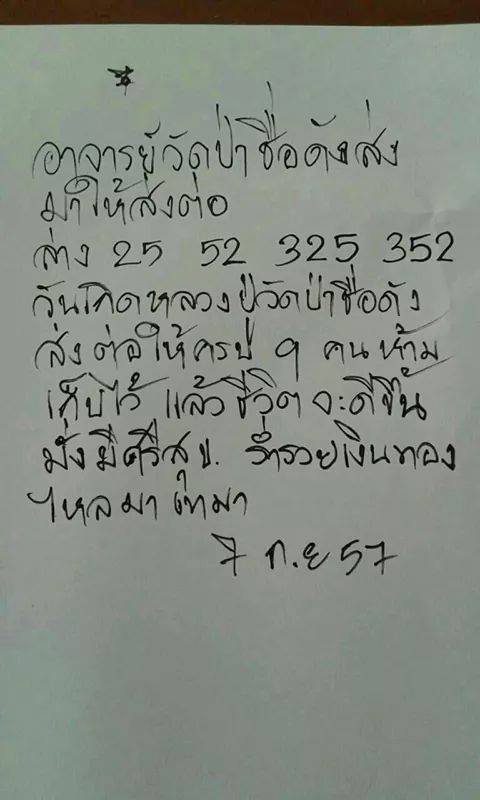 อาจารย์วัดป่าชื่อดังส่ง
มาให้ส่งต่อ
ล่าง 25 52 325 352
วันเกิดหลวงปู่วัดป่าชื่อดัง
ส่งต่อให้ครบ ๑ คนห้าม
เก็บไว้ แล้วชีวิตจะดีขึ้น
มั่งมีศรีสุข. ร่ำรวยเงินทอง
ไหลมาเทมา
7 ก.ย 57